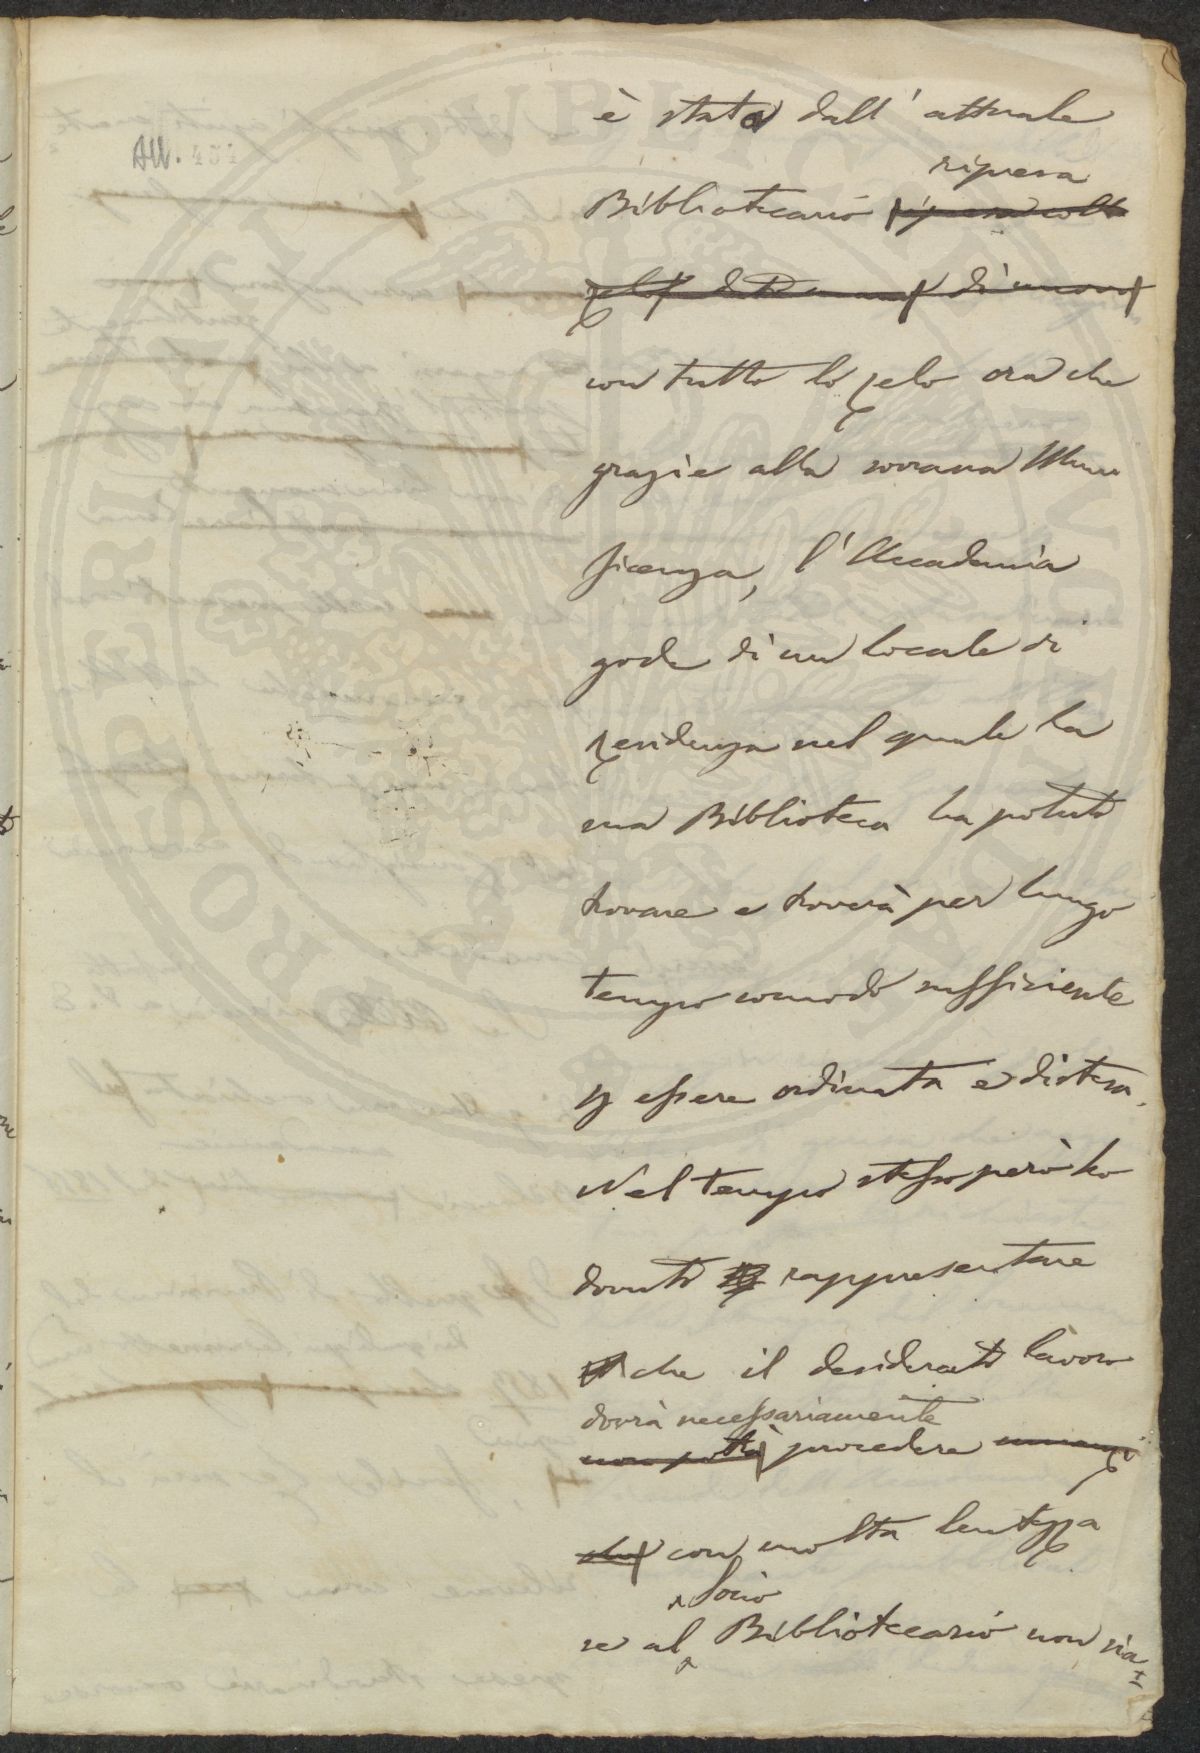 All. 454
è stata dall' attuale
ripresa
Bibliotecario ripresa collo
zelo di nuovo
con tutto lo zelo ora che
grazie alla sovrana Muni
ficenza, l'Accademia
gode di un locale di
residenza nel quale la
sua Biblioteca ha potuto
trovare e troverà per lungo
tempo comodo sufficiente
p essere ordinata e distesa.
Nel tempo stesso però ho
dovuto rappresentare
che il desiderato lavoro
dovrà necessariamente
non potrà procedere
che con molta lentezza
Socio
se al Bibliotecario non sia